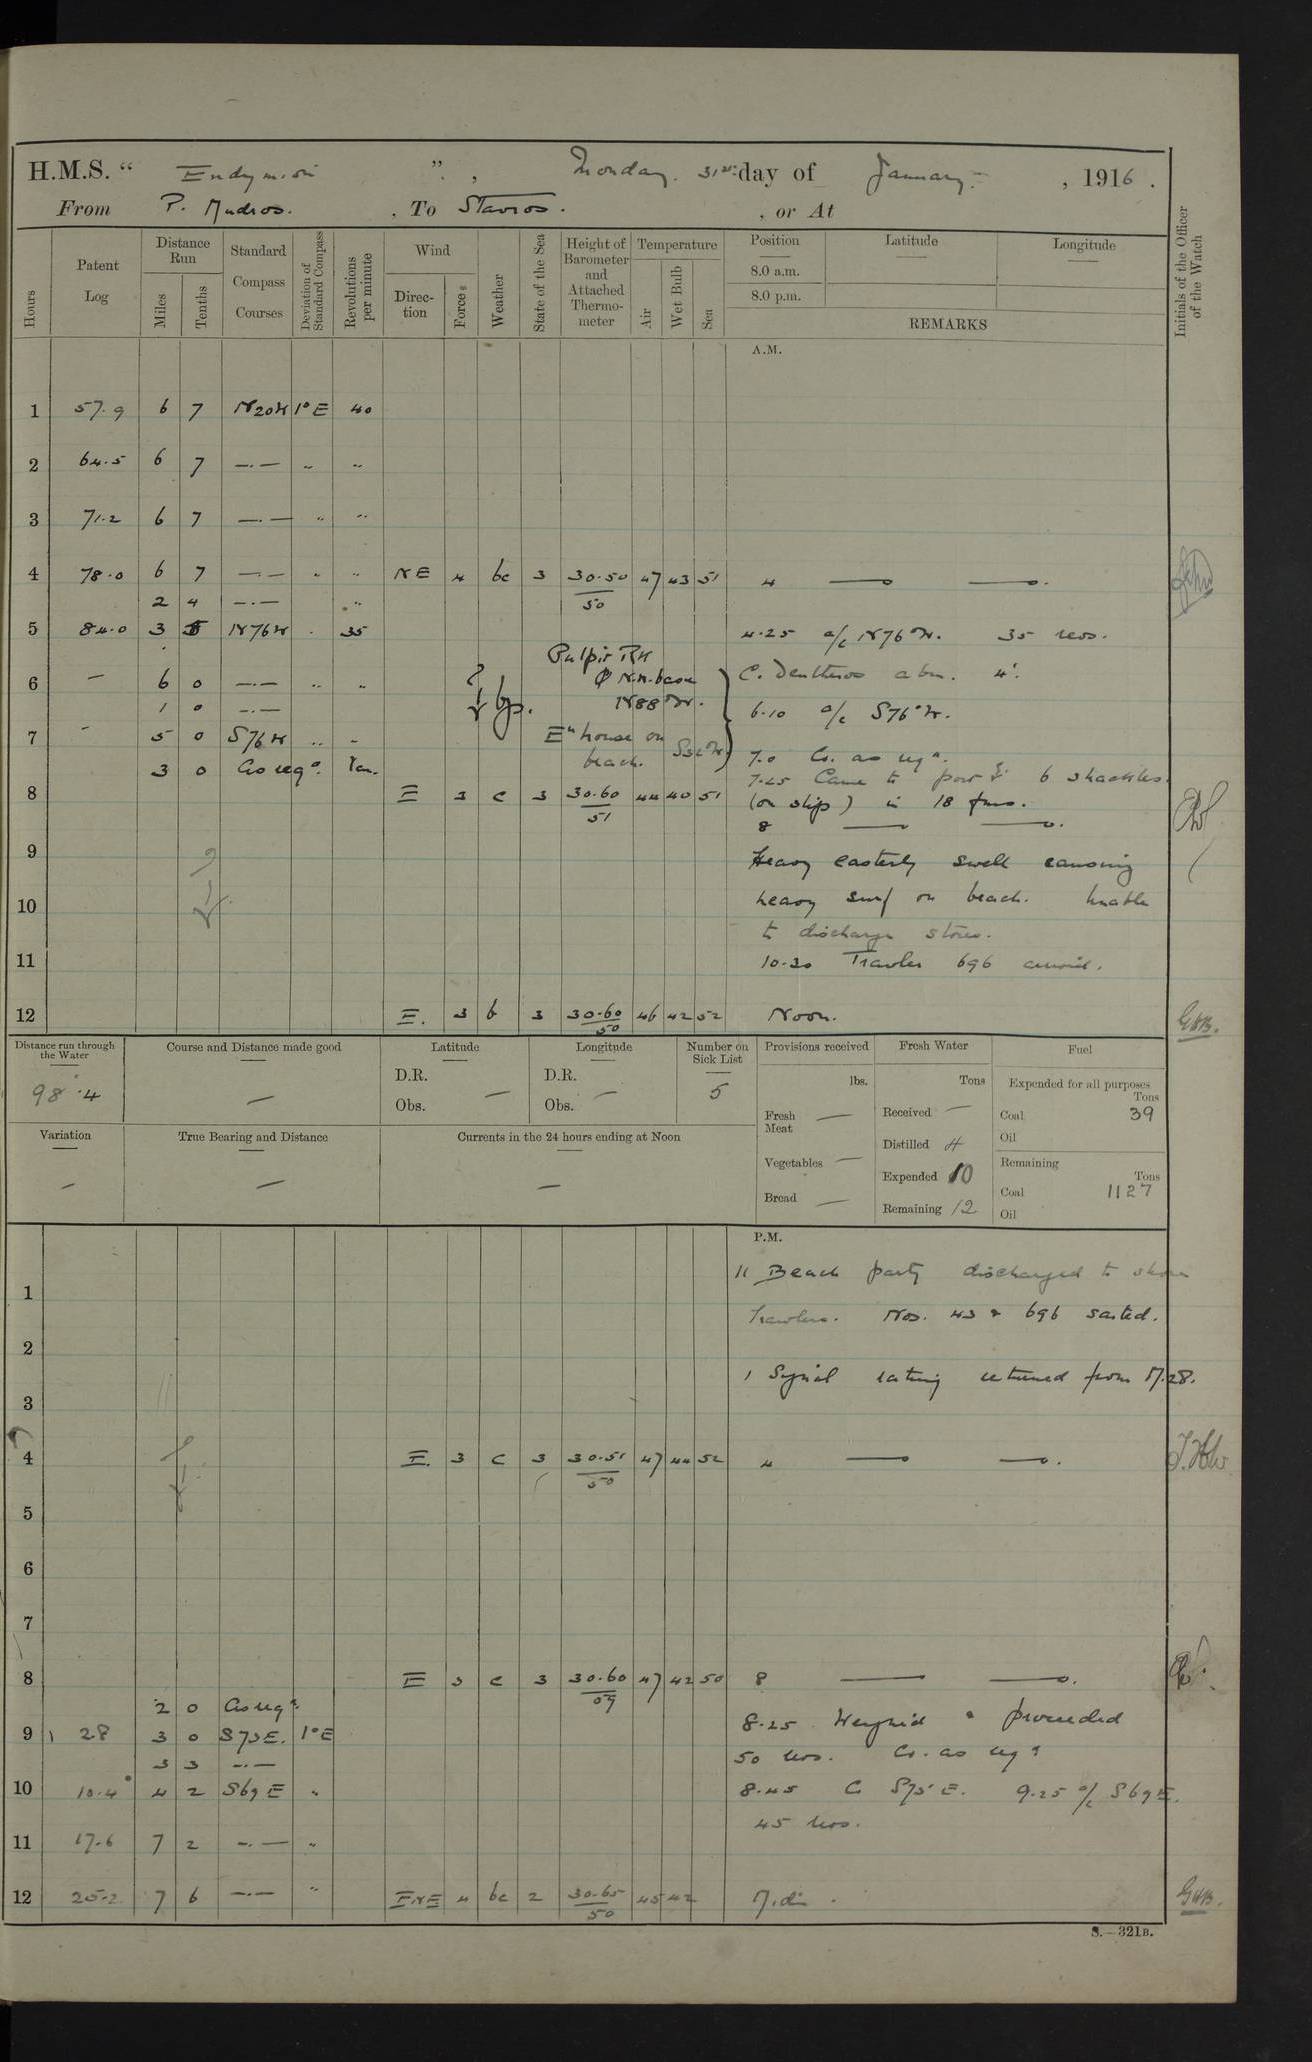 H.M.S. “ Endymion ”, Monday 31st day of January, 1916.
From P. Mudros. , To Stavros. , or At
Hours
Patent Log
Distance Run
Miles
Tenths
Standard Compass Courses
Deviation of Standard Compass
Revolutions per minute
Wind
Direction
Force
Weather
State of the Sea
Height of Barometer and Attached Thermometer
Temperature
Air
Wet Bulb
Sea
Position
Latitude
Longitude
8.0 a.m.
8.0 p.m.
REMARKS
Initials of the Officer of the Watch
A.M.
1 57.9 6 7 N20W 1°E 40
2 64.5 6 7 —.— " "
3 71.2 6 7 —.— " "
4 78.0 6 7 —.— " " NE 4 bc 3 30.50/50 47 43 51 4
2 4 —.— "
5 84.0 3 5 N76W " 35 4.25 a/c N76°W. 35 revs.
Pulpit Rk
6 — 6 0 —.— " " N88°W. abm. 4'.
1 0 —.— 6.10 a/c S76°W.
7 5 0 S76W " " En house on beach. 7.0 Co. as reqd.
3 0 As reqd. Var. 7.25 Came to port 6 shackles
8 E 3 c 3 30.60/51 44 40 51 (on ship) in 18 fms.
8
9 Heavy easterly swell causing
10 heavy surf on beach. Unable
to discharge stores.
11 10.30 Trawler 696 arrived.
12 E. 3 b 3 30.60/50 46 42 52 Noon. GHB.
Distance run through the Water
98.4
Course and Distance made good
—
Latitude
D.R.
Obs. —
Longitude
D.R.
Obs. —
Number on Sick List
5
Provisions received
lbs.
Fresh Meat —
Vegetables —
Bread —
Fresh Water
Tons
Received —
Distilled 4
Expended 10
Remaining 12
Fuel
Expended for all purposes
Tons
Coal 39
Oil
Remaining
Tons
Coal 1127
Oil
Variation
—
True Bearing and Distance
—
Currents in the 24 hours ending at Noon
—
P.M.
11 Beach party discharged to shore
1
Trawlers. Nos. 43 & 696 sailed.
2
1 Signal rating returned from M.28.
3
4 E. 3 c 3 30.51/50 47 44 52 4
5
6
7
8 E 3 c 3 30.60/59 47 42 50 8
2 0 As reqd. 8.25 Weighed & proceeded
9 2.8 3 0 S75E. 1°E
3 3 —.— 50 revs. Co. as reqd
10 10.4 4 2 S69E " 8.45 Co S75°E. 9.25 a/c S69E.
45 revs.
11 17.6 7 2 —.— "
12 25.2 7 6 —.— " ENE 4 bc 2 30.65/50 45 42 Midt. GHB.
S.—321B.